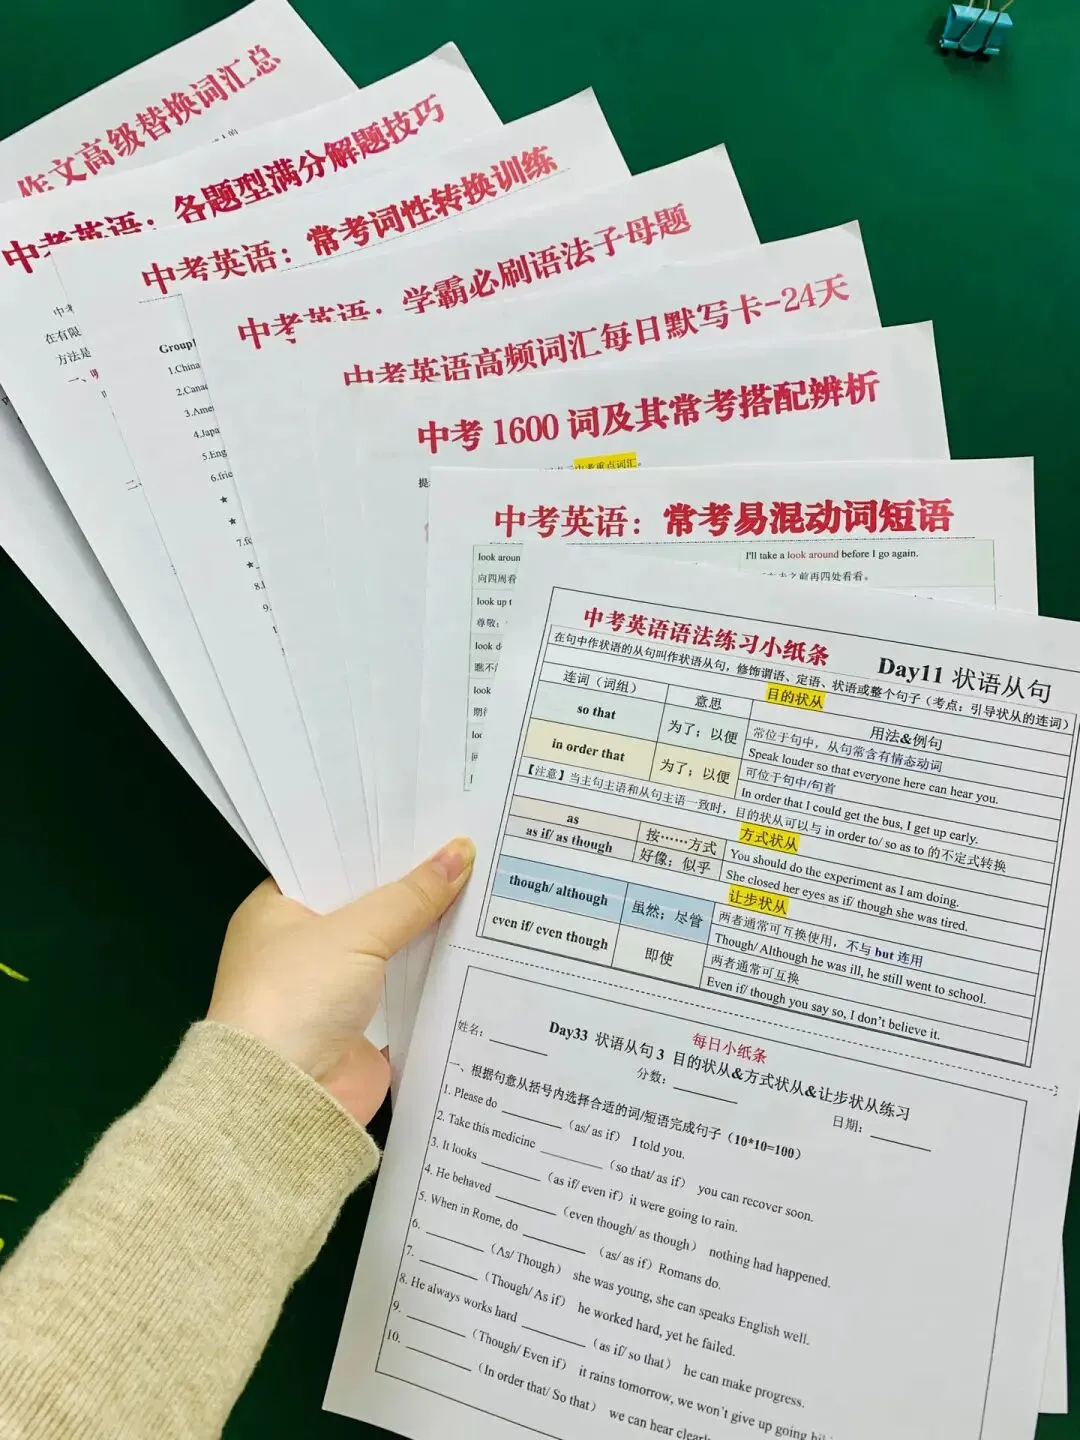 作文高级替换词汇总
中考英语：各题型满分解题技巧
中考
在有限
方法是
一、
二、
中考英语：常考词性转换训练
Group1
1.China
2.Cana
3.Ame
4.Japa
5.Eng
6.frie
★
★
7.fo
★
8.
9.
中考英语：学霸必刷语法子母题
中考英语高频词汇每日默写卡-24天
中考 1600 词及其常考搭配辨析
中考重点词汇。
提
中考英语：常考易混动词短语
look aroun
I'll take a look around before I go again.
向四周看
之前再四处看看。
look up t
尊敬；
look d
瞧不
look
期待
中考英语语法练习小纸条 Day11 状语从句
在句中作状语的从句叫作状语从句，修饰谓语、定语、状语或整个句子（考点：引导状从的连词）
目的状从
连词（词组） 意思 用法&例句
so that 为了；以便 常位于句中，从句常含有情态动词
Speak louder so that everyone here can hear you.
in order that 为了；以便 可位于句中/句首
In order that I could get the bus, I get up early.
【注意】当主句主语和从句主语一致时，目的状从可以与 in order to/ so as to 的不定式转换
方式状从
as 按……方式 You should do the experiment as I am doing.
as if/ as though 好像；似乎 She closed her eyes as if/ though she was tired.
让步状从
though/ although 虽然；尽管 两者通常可互换使用，不与 but 连用
Though/ Although he was ill, he still went to school.
even if/ even though 即使 两者通常可互换
Even if/ though you say so, I don't believe it.
每日小纸条
Day33 状语从句 3 目的状从&方式状从&让步状从练习
姓名： 分数： 日期：
一、根据句意从括号内选择合适的词/短语完成句子（10*10=100）
1. Please do ________ （as/ as if） I told you.
2. Take this medicine ________ （so that/ as if） you can recover soon.
3. It looks ________ （as if/ even if）it were going to rain.
4. He behaved ________ （even though/ as though） nothing had happened.
5. When in Rome, do ________ （as/ as if）Romans do.
6. ________ （As/ Though） she was young, she can speaks English well.
7. ________ （Though/ As if） he worked hard, yet he failed.
8. He always works hard ________ （as if/ so that） he can make progress.
9. ________ （Though/ Even if） it rains tomorrow, we won't give up going
10. ________ （In order that/ So that） we can hear